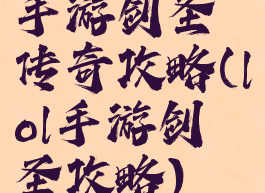 手游剑圣
传奇攻略(l
ol手游剑
圣攻略)